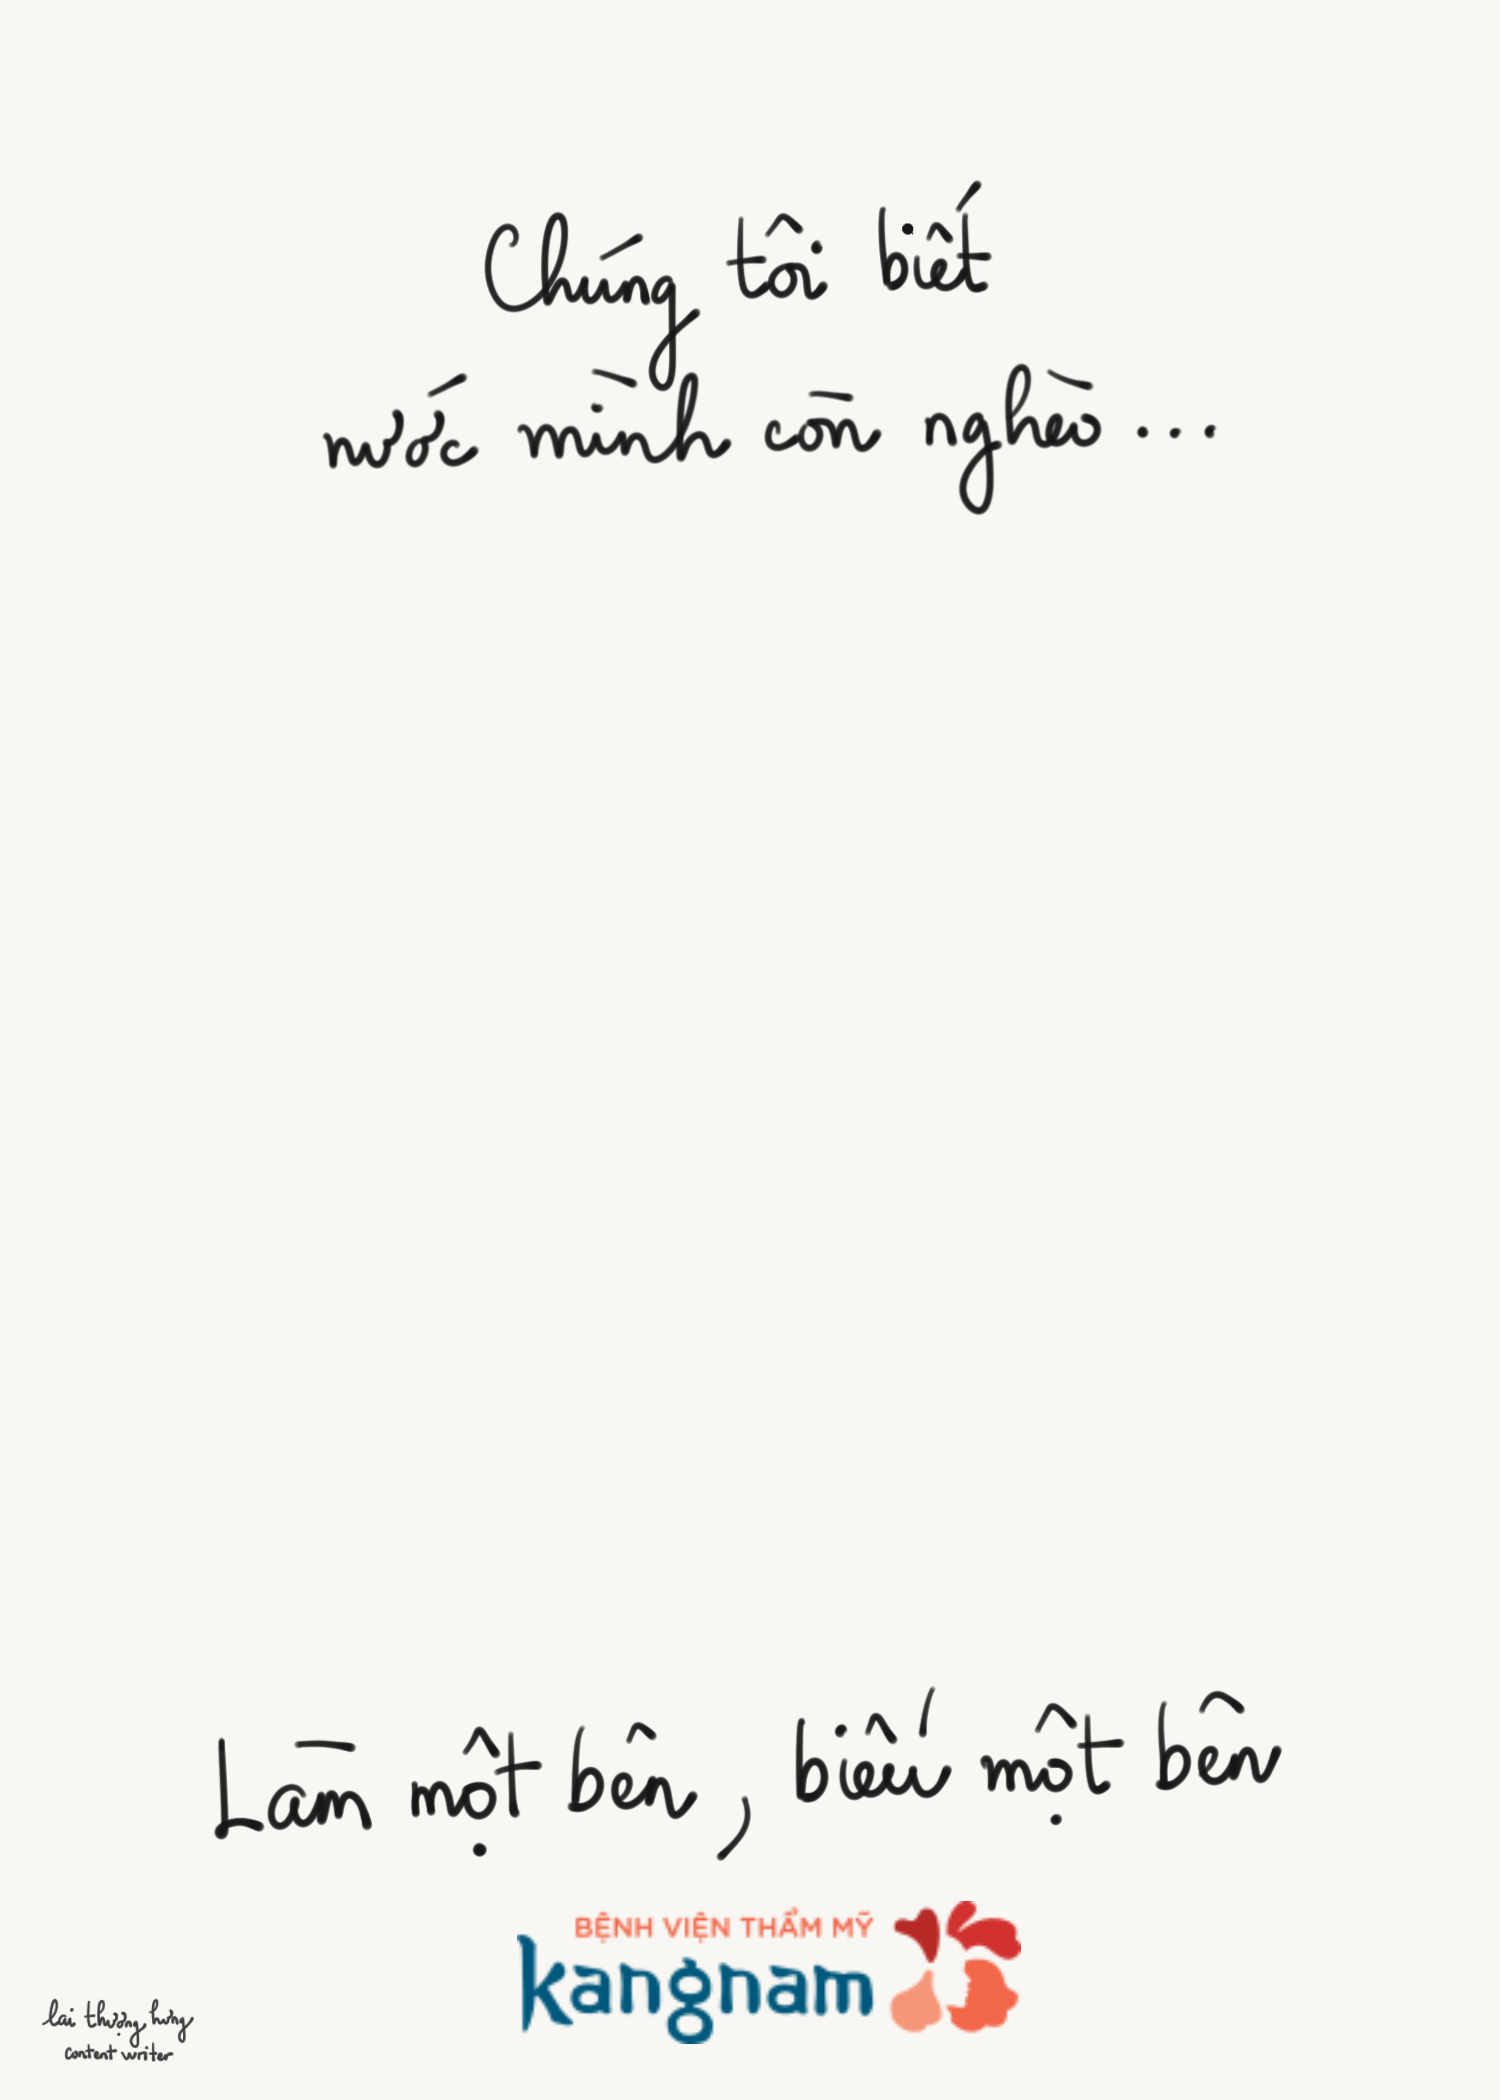 Chúng tôi biết
nước mình còn nghèo...
Làm một bên, biếu một bên
BỆNH VIỆN THẨM MỸ
kangnam
lai thượng hưng
content writer